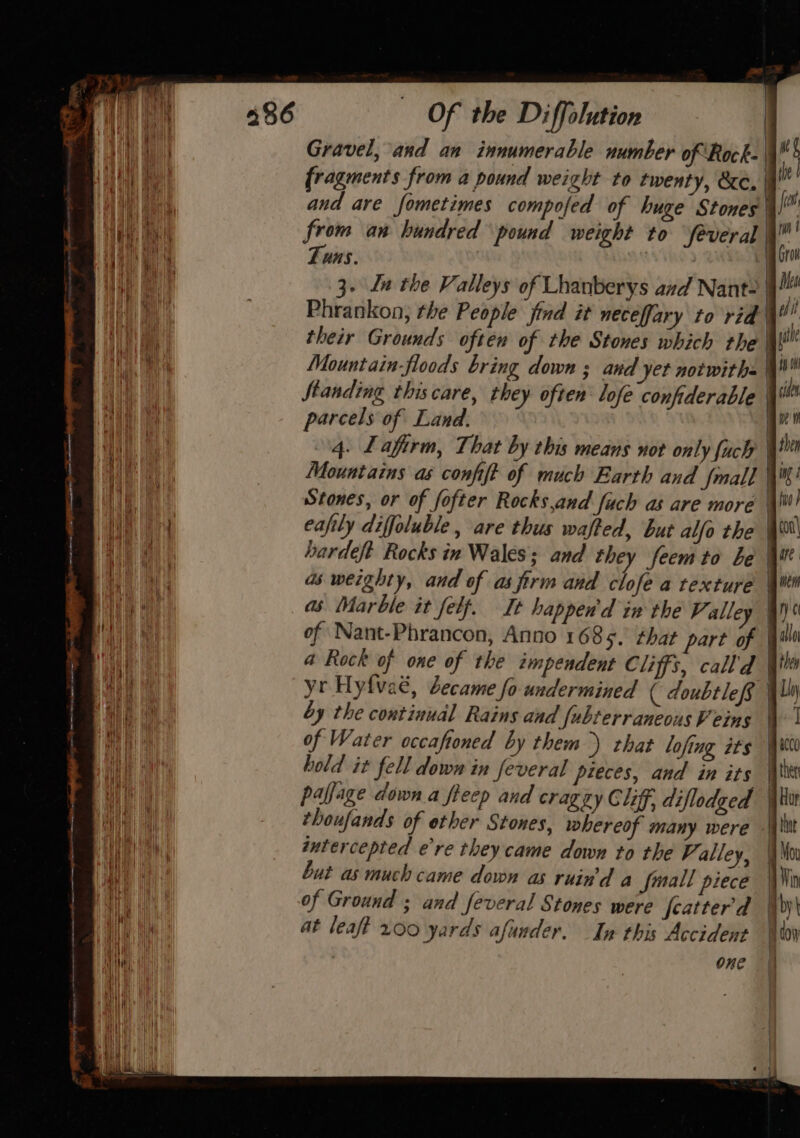 286 Of the Diſſolution
Gravel, and an innumerable number of Rock-
fragments from a pound weight to twenty, &c.
and are ſometimes compoſed of huge Stones
from an hundred pound weight to ſeveral
Tuns.
3. In the Valleys of Lhanberys and Nant-
Phrankon, the People find it neceſſary to rid
their Grounds often of the Stones which the
Mountain-floods bring down; and yet notwith-
ſtanding this care, they often loſe conſiderable
parcels of Land.
4. I affirm, That by this means not only ſuch
Mountains as conſiſt of much Earth and ſmall
Stones, or of ſofter Rocks, and ſuch as are more
eaſily diſſoluble, are thus waſted, but alſo the
hardeſt Rocks in Wales; and they ſeem to be
as weighty, and of as firm and cloſe a texture
as Marble it ſelf. It happen'd in the Valley
of Nant-Phrancon, Anno 1685. that part of
a Rock of one of the impendent Cliffs, call'd
yr Hyſvaë, became ſo undermined (doubtleſs
by the continual Rains and ſubterraneous Veins
of Water occaſioned by them) that loſing its
hold it fell down in ſeveral pieces, and in its
paſſage down a ſteep and craggy Cliff, diſlodged
thouſands of other Stones, whereof many were
intercepted e're they came down to the Valley,
but as much came down as ruin'd a ſmall piece
of Ground; and ſeveral Stones were ſcatter'd
at leaſt 200 yards aſunder. In this Accident
one